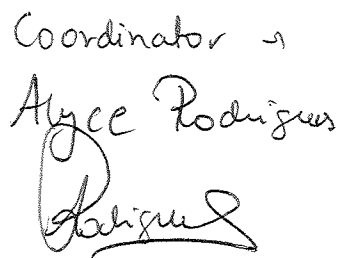 Coordinator →
Alyce Rodrigues
ARodrigues